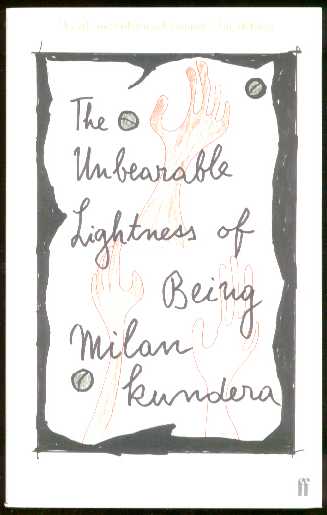 The
Unbearable
Lightness of
Being
Milan
kundera
ff